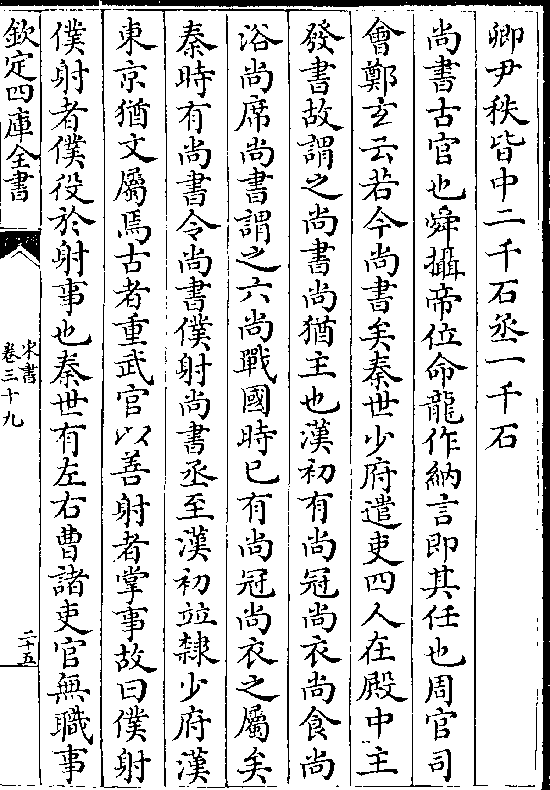 卿尹秩皆中二千石丞一千石
尚書古官也舜攝帝位命龍作納言即其任也周官司
會鄭玄云若今尚書矣秦世少府遣吏四人在殿中主
發書故謂之尚書尚猶主也漢初有尚冠尚衣尚食尚
浴尚席尚書謂之六尚戰國時已有尚冠尚衣之屬矣
秦時有尚書令尚書僕射尚書丞至漢初並隸少府漢
東京猶文屬焉古者重武官以善射者掌事故曰僕射
僕射者僕役於射事也秦世有左右曹諸吏官無職事
欽定四庫全書
宋書
卷三十九
二十五